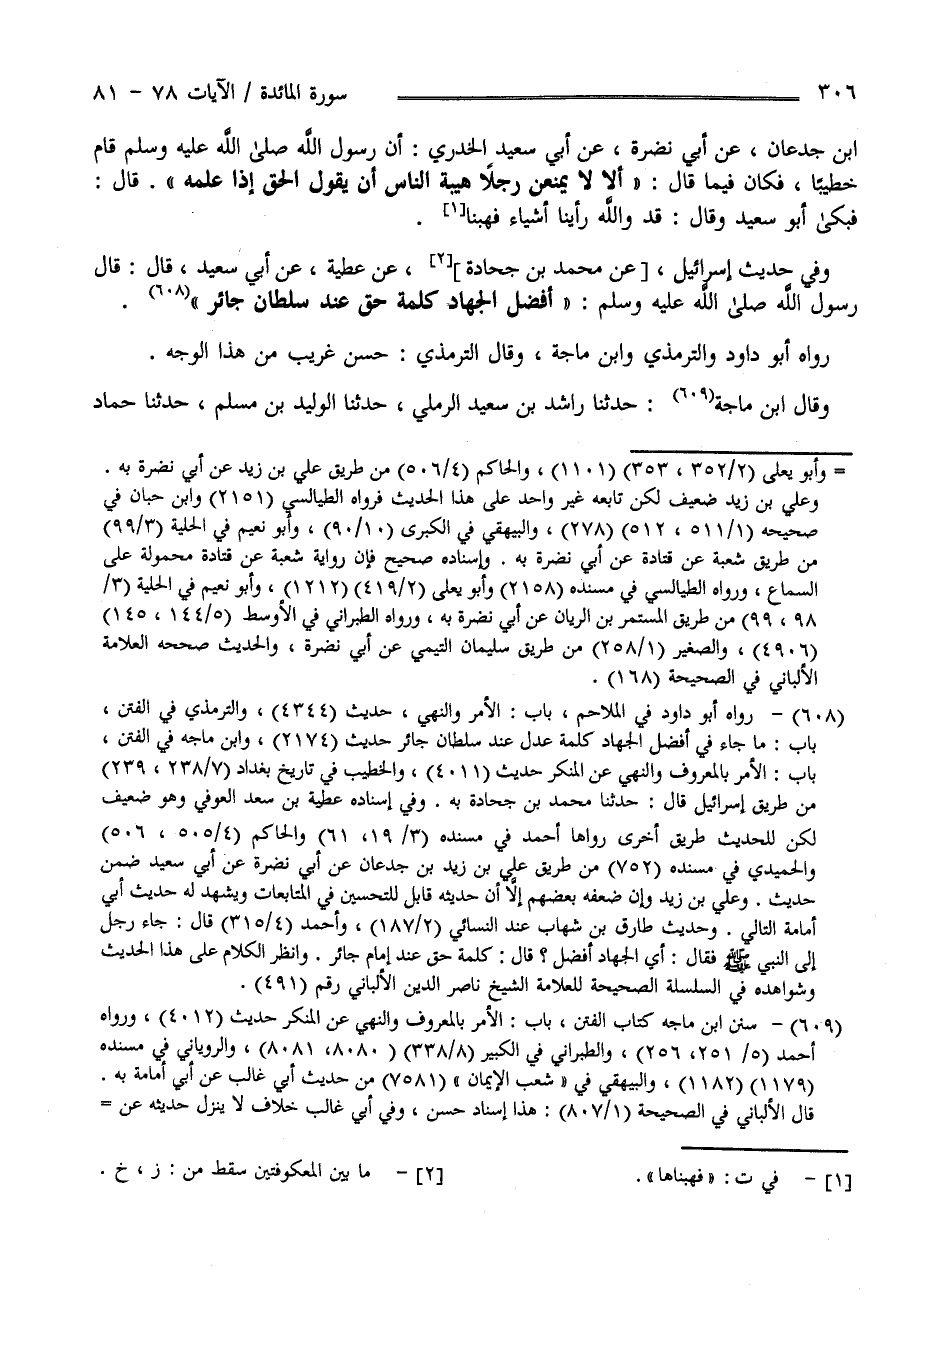 ٣٠٦ سورة المائدة / الآيات ٧٨ - ٨١
ابن جدعان ، عن أبي نضرة ، عن أبي سعيد الخدري : أن رسول اللَّه صلىٰ اللَّه عليه وسلم قام
خطيبًا ، فكان فيما قال : « ألا لا يمنعن رجلًا هيبة الناس أن يقول الحق إذا علمه » . قال :
فبكىٰ أبو سعيد وقال : قد واللَّه رأينا أشياء فهبنا[١] .
وفي حديث إسرائيل ، [ عن محمد بن جحادة ][٢] ، عن عطية ، عن أبي سعيد ، قال : قال
رسول اللَّه صلىٰ اللَّه عليه وسلم : « أفضل الجهاد كلمة حق عند سلطان جائر »(٦٠٨) .
رواه أبو داود والترمذي وابن ماجة ، وقال الترمذي : حسن غريب من هذا الوجه .
وقال ابن ماجة(٦٠٩) : حدثنا راشد بن سعيد الرملي ، حدثنا الوليد بن مسلم ، حدثنا حماد
= وأبو يعلى (٣٥٢/٢ ، ٣٥٣) (١١٠١) ، والحاكم (٥٠٦/٤) من طريق علي بن زيد عن أبي نضرة به .
وعلي بن زيد ضعيف لكن تابعه غير واحد على هذا الحديث فرواه الطيالسي (٢١٥١) وابن حبان في
صحيحه (٥١١/١ ، ٥١٢) (٢٧٨) ، والبيهقي في الكبرى (٩٠/١٠) ، وأبو نعيم في الحلية (٩٩/٣)
من طريق شعبة عن قتادة عن أبي نضرة به . وإسناده صحيح فإن رواية شعبة عن قتادة محمولة على
السماع ، ورواه الطيالسي في مسنده (٢١٥٨) وأبو يعلى (٤١٩/٢) (١٢١٢) ، وأبو نعيم في الحلية (٣/
٩٨ ، ٩٩) من طريق المستمر بن الريان عن أبي نضرة به ، ورواه الطبراني في الأوسط (١٤٤/٥ ، ١٤٥)
(٤٩٠٦) ، والصغير (٢٥٨/١) من طريق سليمان التيمي عن أبي نضرة ، والحديث صححه العلامة
الألباني في الصحيحة (١٦٨) .
(٦٠٨) - رواه أبو داود في الملاحم ، باب : الأمر والنهي ، حديث (٤٣٤٤) ، والترمذي في الفتن ،
باب : ما جاء في أفضل الجهاد كلمة عدل عند سلطان جائر حديث (٢١٧٤) ، وابن ماجه في الفتن ،
باب : الأمر بالمعروف والنهي عن المنكر حديث (٤٠١١) ، والخطيب في تاريخ بغداد (٢٣٨/٧ ، ٢٣٩)
من طريق إسرائيل قال : حدثنا محمد بن جحادة به . وفي إسناده عطية بن سعد العوفي وهو ضعيف
لكن للحديث طريق أخرى رواها أحمد في مسنده (٣/ ١٩، ٦١) والحاكم (٥٠٥/٤ ، ٥٠٦)
والحميدي في مسنده (٧٥٢) من طريق علي بن زيد بن جدعان عن أبي نضرة عن أبي سعيد ضمن
حديث . وعلي بن زيد وإن ضعفه بعضهم إلَّا أن حديثه قابل للتحسين في المتابعات ويشهد له حديث أبي
أمامة التالي . وحديث طارق بن شهاب عند النسائي (١٨٧/٢) ، وأحمد (٣١٥/٤) قال : جاء رجل
إلى النبي ﷺ فقال : أي الجهاد أفضل ؟ قال : كلمة حق عند إمام جائر . وانظر الكلام على هذا الحديث
وشواهده في السلسلة الصحيحة للعلامة الشيخ ناصر الدين الألباني رقم (٤٩١) .
(٦٠٩) - سنن ابن ماجه كتاب الفتن ، باب : الأمر بالمعروف والنهي عن المنكر حديث (٤٠١٢) ، ورواه
أحمد (٥/ ٢٥١، ٢٥٦) ، والطبراني في الكبير (٣٣٨/٨) ( ٨٠٨٠، ٨٠٨١) ، والروياني في مسنده
(١١٧٩) (١١٨٢) ، والبيهقي في « شعب الإيمان » (٧٥٨١) من حديث أبي غالب عن أبي أمامة به .
قال الألباني في الصحيحة (٨٠٧/١) : هذا إسناد حسن ، وفي أبي غالب خلاف لا ينزل حديثه عن =
[١] - في ت : « فهبناها» . [٢] - ما بين المعكوفتين سقط من : ز ، خ .